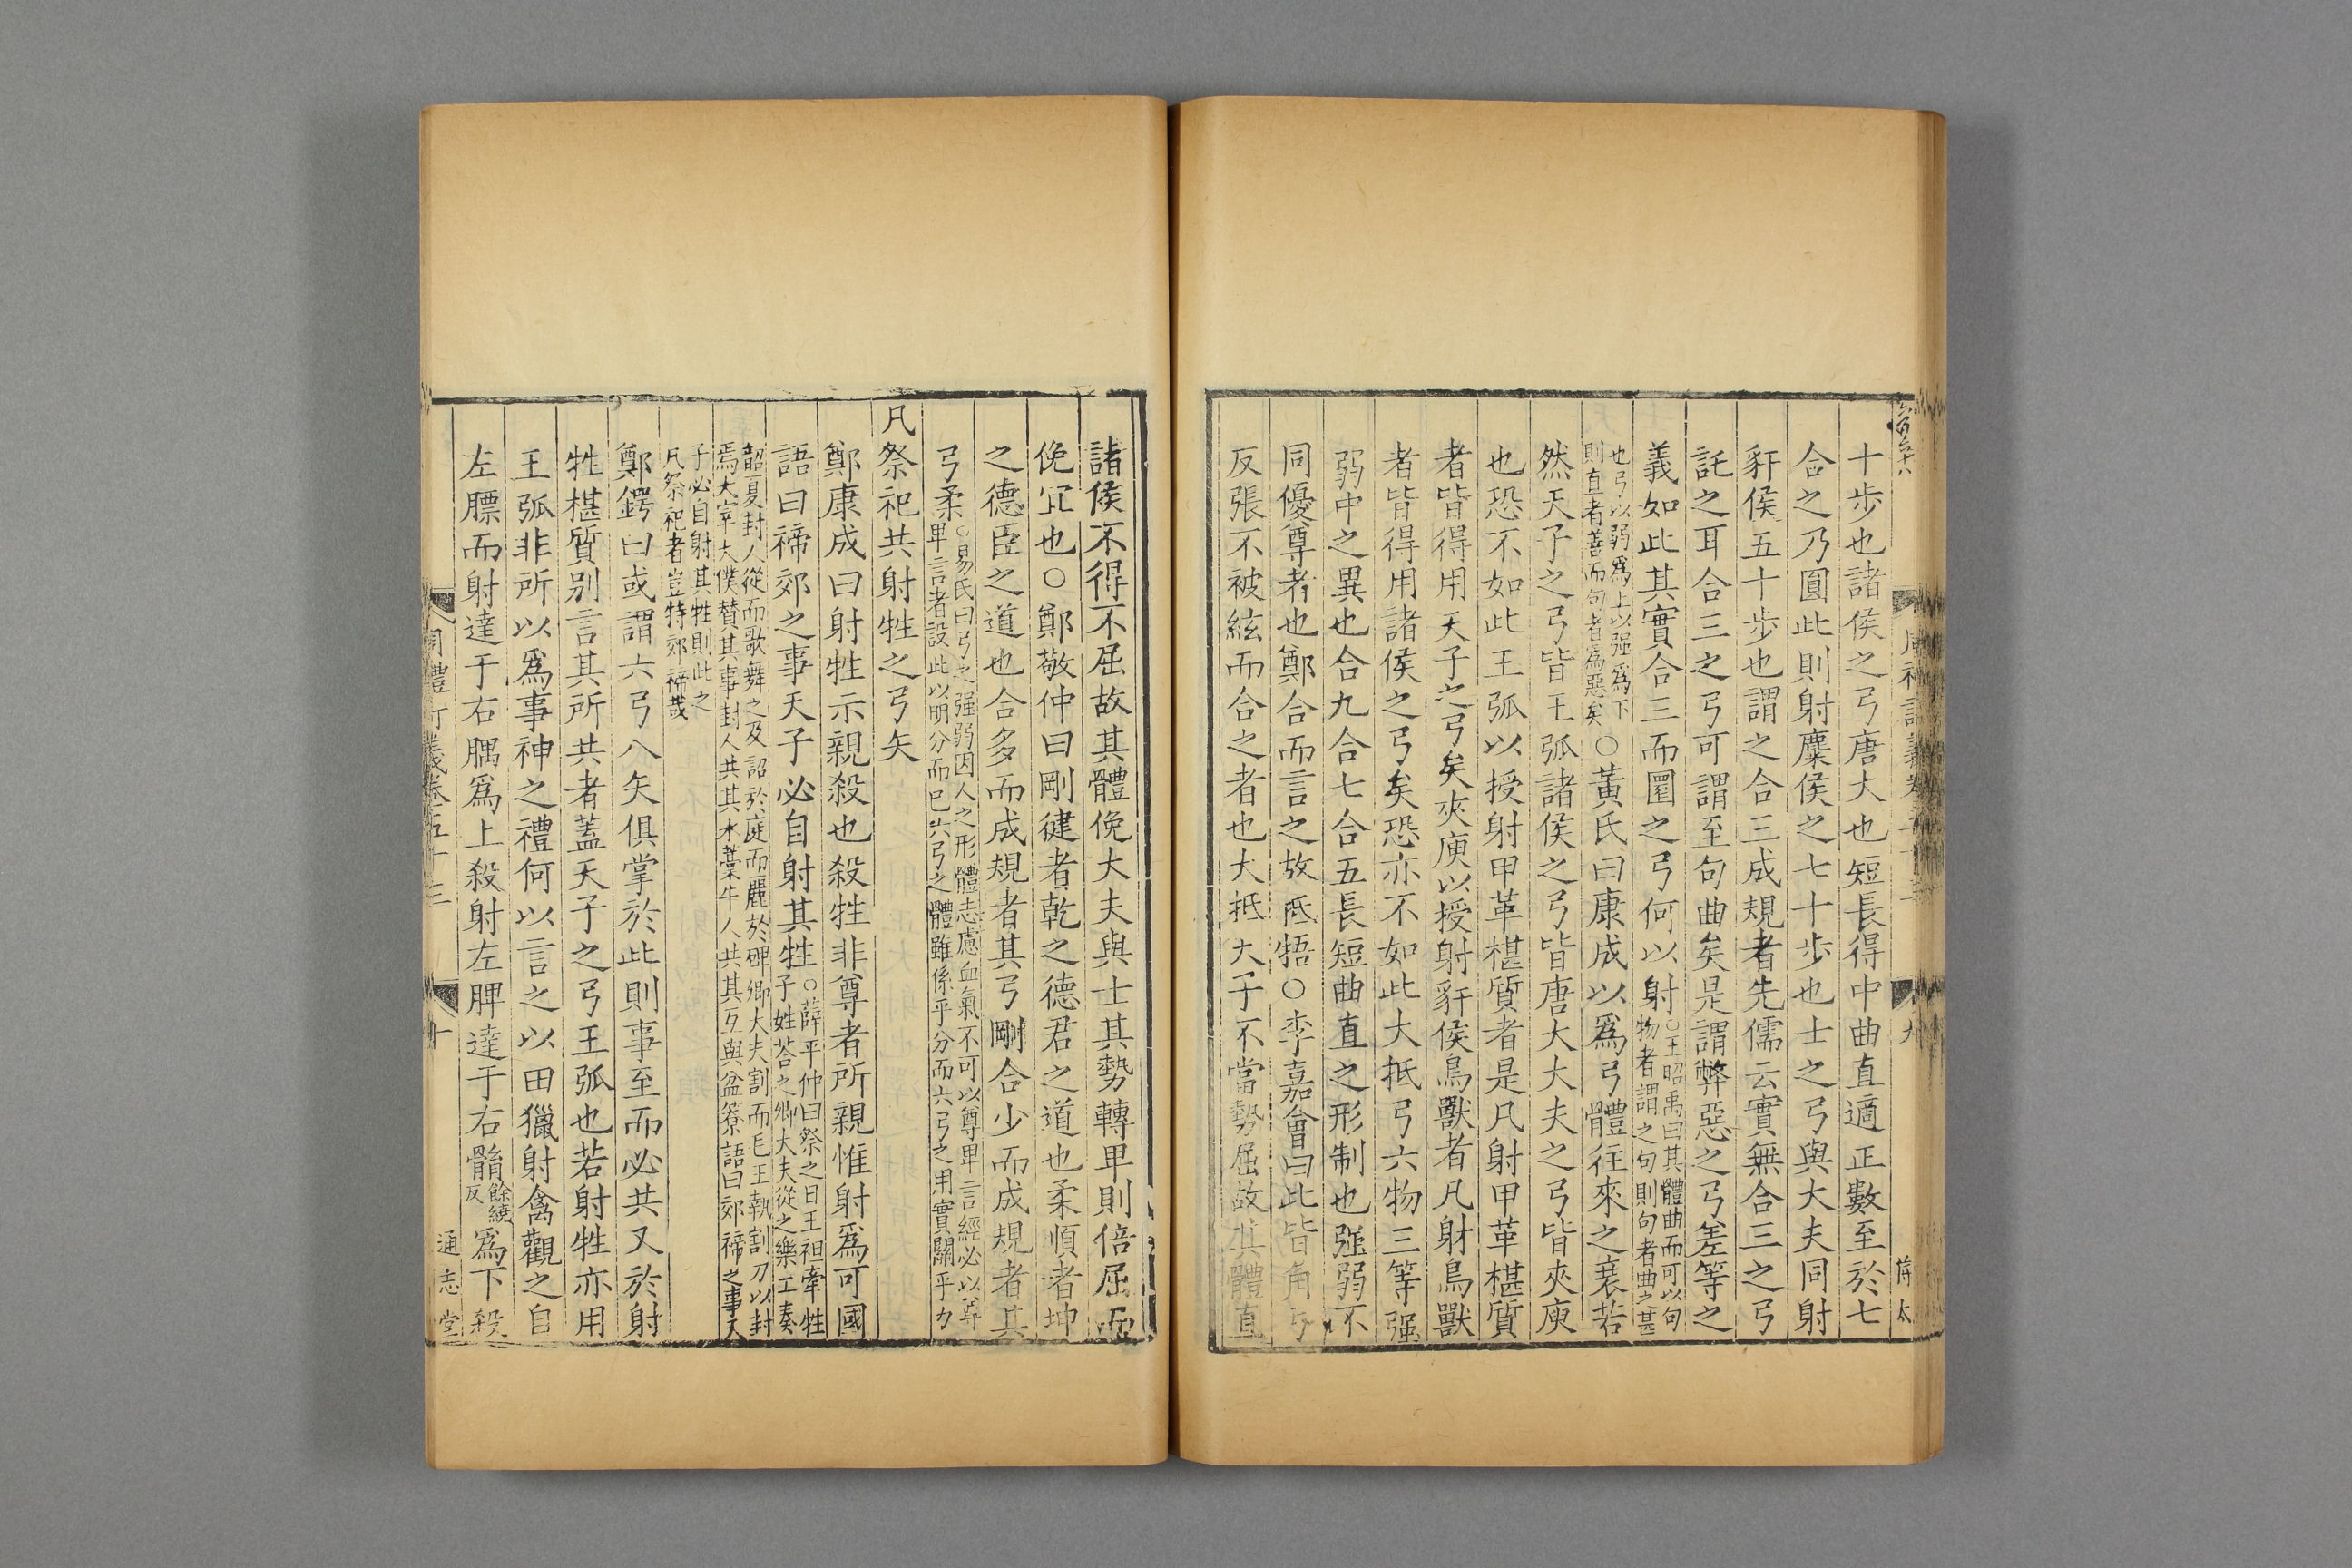 十步也諸侯之弓唐大也短長得中曲直適正數至於七
合之乃圓此則射麋侯之七十步也士之弓與大夫同射
豻侯五十步也謂之合三成規者先儒云實無合三之弓
託之耳合三之弓可謂至句曲矣是謂弊惡之弓差等之
義如此其實合三而圍之弓何以射○王昭禹曰其體曲而可以句
物者謂之句則句者曲之甚
也弓以弱爲上以强爲下
則直者善而句者爲惡矣○黃氏曰康成以爲弓體徃來之衰若
然天子之弓皆王弧諸侯之弓皆唐大大夫之弓皆夾庾
也恐不如此王弧以授射甲革椹質者是凡射甲革椹質
者皆得用天子之弓矣夾庾以授射豻侯鳥獸者凡射鳥獸
者皆得用諸侯之弓矣恐亦不如此大抵弓六物三等强
弱中之異也合九合七合五長短曲直之形制也强弱不
同優尊者也鄭合而言之故抵牾○李嘉會曰此皆角弓
反張不被絃而合之者也大抵大于不當勢屈故其體直
諸侯不得不屈故其體俛大夫與士其勢轉甲則倍屈而
俛冝也○鄭敬仲曰剛健者乾之德君之道也柔順者坤
之德臣之道也合多而成規者其弓剛合少而成規者其
弓柔○易氏曰弓之强弱因人之形體志慮血氣不可以尊甲言經必以尊
甲言者設此以明分而已六弓之體雖係乎分而六弓之用實關乎力
凡祭祀共射牲之弓矢
鄭康成曰射牲示親殺也殺牲非尊者所親惟射爲可國
語曰禘郊之事天子必自射其牲○薛平仲曰祭之日王袒牽牲
子姓荅之卿大夫從之樂工奏
韶夏封人從而歌舞之及詔於庭而麗於碑卿大夫割而毛王執割刀以封
焉大宰大僕賛其事封人共其水藁牛人共其互與盆簝語曰郊禘之事天
子必自射其牲則此之
凡祭祀者豈特郊禘哉
鄭鍔曰或謂六弓八矢俱掌於此則事至而必共又於射
牲椹質别言其所共者蓋天子之弓王弧也若射牲亦用
王弧非所以爲事神之禮何以言之以田獵射禽觀之自
左膘而射達于右腢爲上殺射左脾達于右䯚餘繞
反爲下殺
通志堂